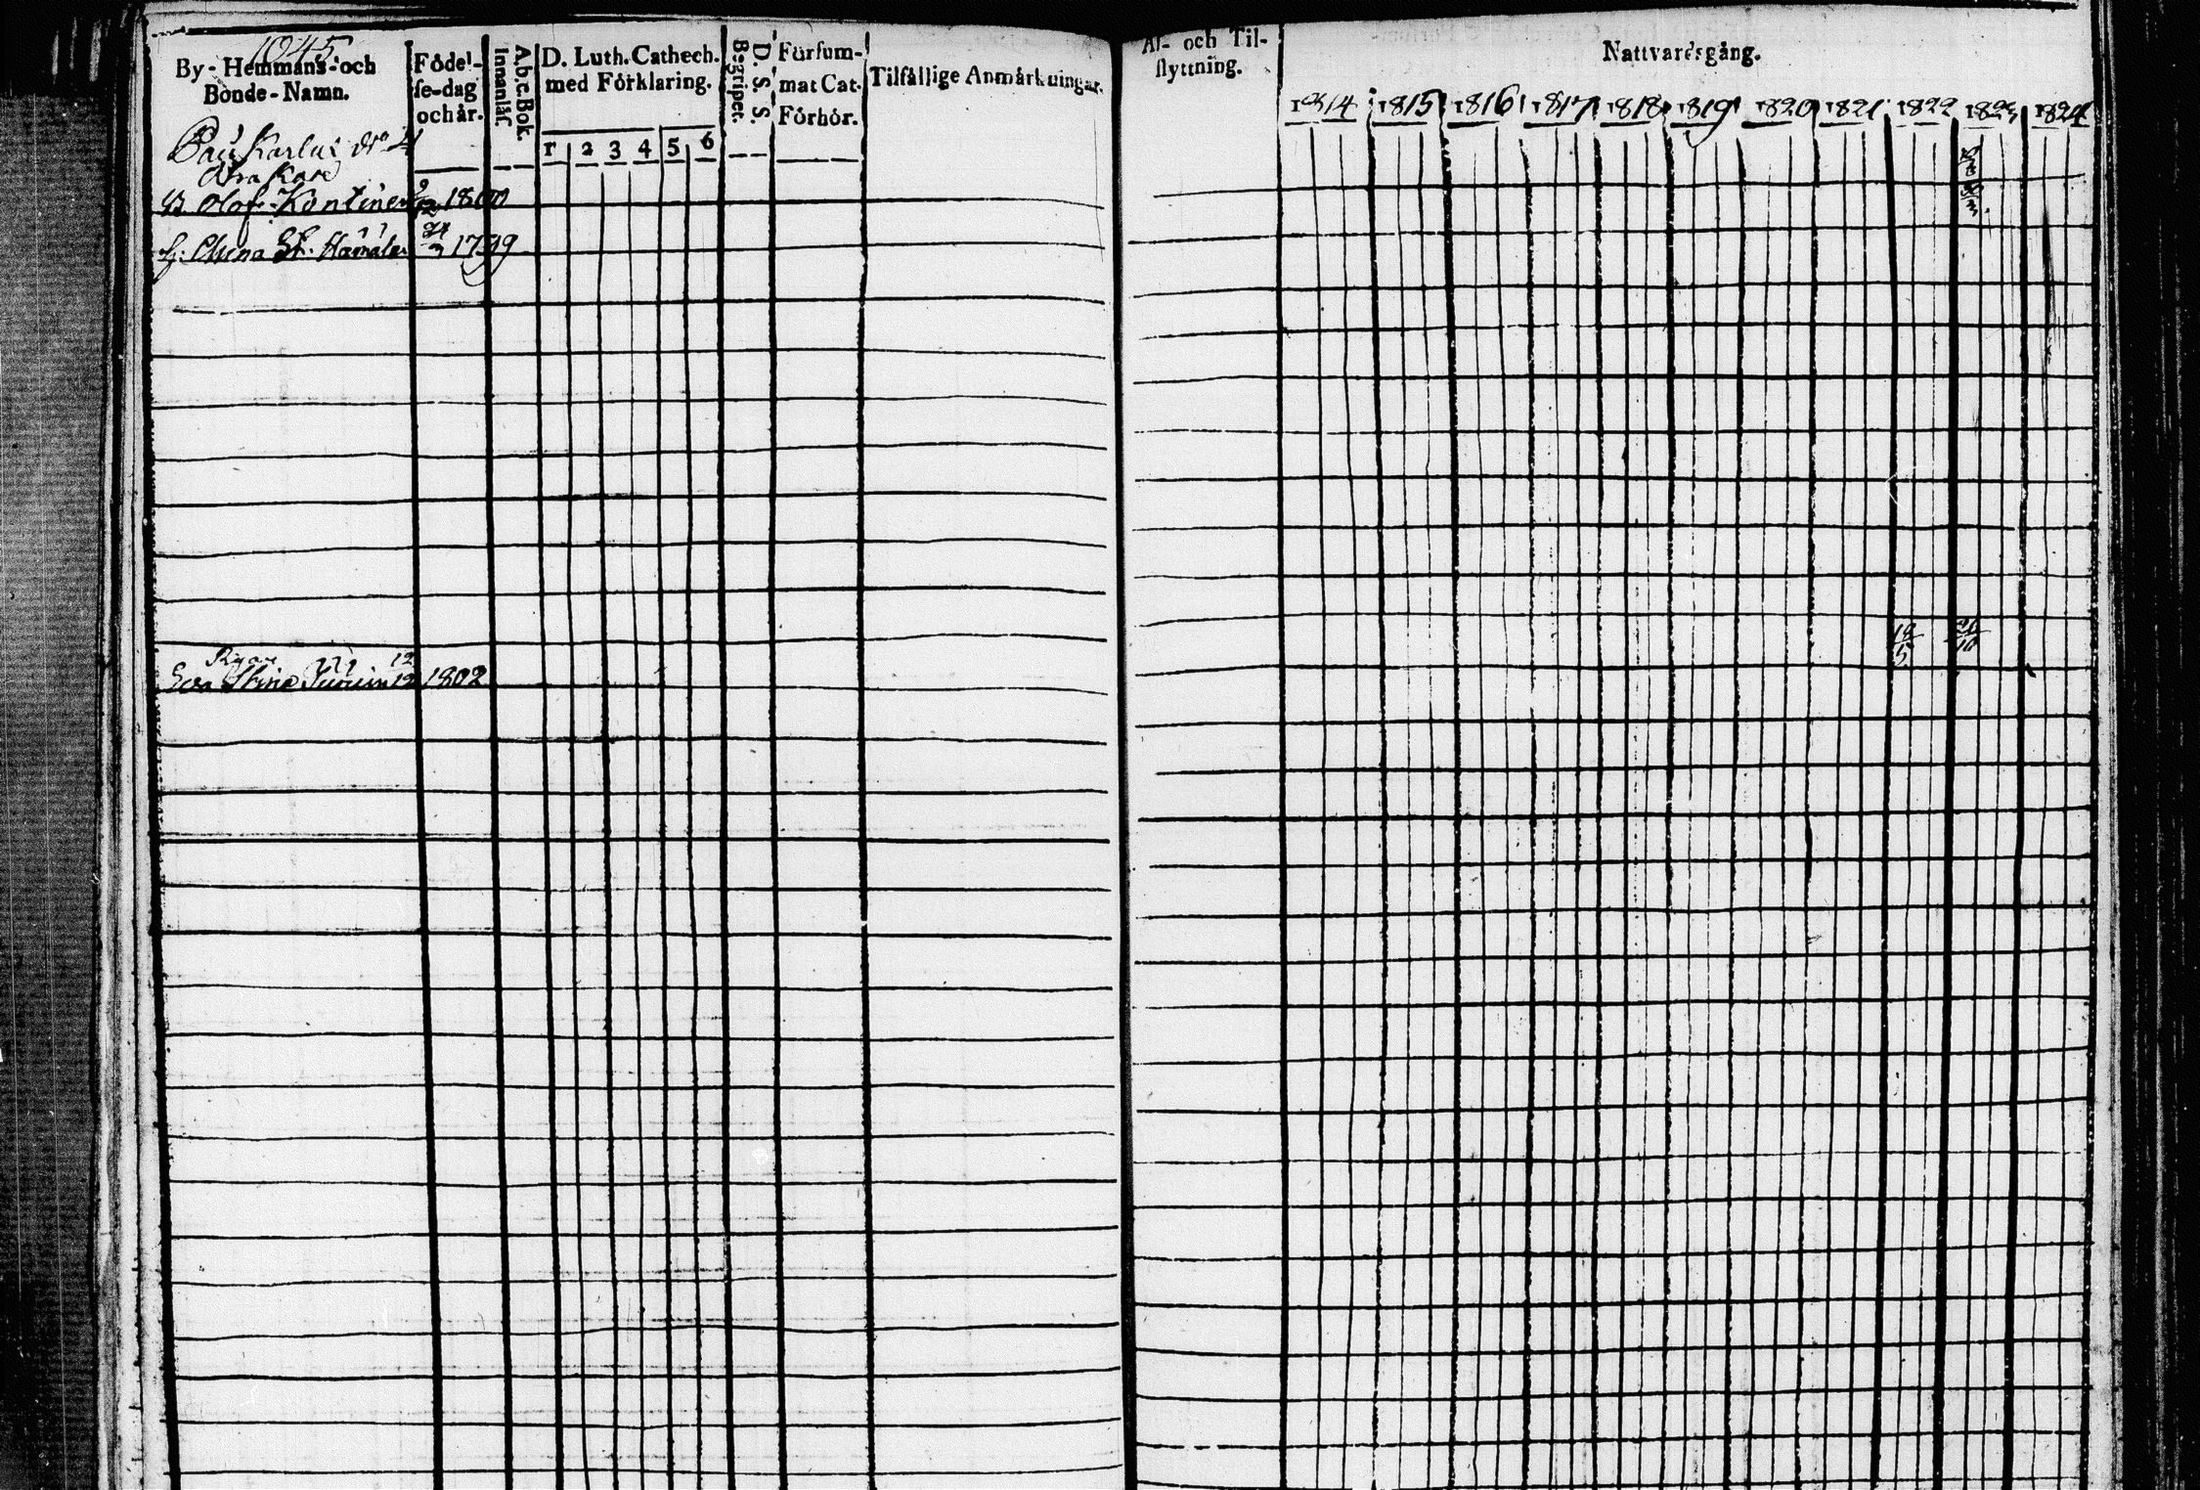 1045
By-Hemmans-och
Bonde-Namn.
Födel-
se-dag
och år.
A.b.c. Bok.
Innanläs.
D. Luth. Cathech.
med Förklaring.
1 2 3 4 5 6
D. S. S.
Begripet.
Försum-
mat Cat.
Förhör.
Tilfällige Anmärkningar.
Karlus No 4
B. Olof Kontinen 1800
H: Elena
Eva Stina 12 1802
Af- och Til-
flyttning.
Nattvardsgång.
1814 1815 1816 1817 1818 1819 1820 1821 1822 1823 1824